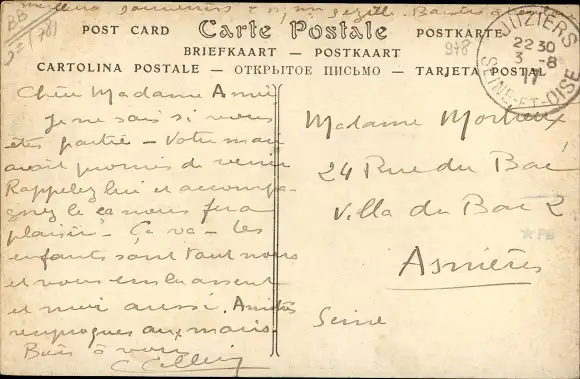 meilleurs souvenirs
BB
(78)
POST CARD Carte Postale POSTKARTE
BRIEFKAART — POSTKAART
CARTOLINA POSTALE — ОТКРЫТОЕ ПИСЬМО — TARJETA POSTAL
978
JUZIERS
22 30
3 -8
11
SEINE-ET-OISE
Chère Madame Amie
Je ne sais si vous
êtes partie — Votre mari
avait promis de venir
Rappelez lui et accompa-
gnez le ça nous fera
plaisir — Ça va — Les
enfants sont tout nous
et vous embrassent
et moi aussi. Amitiés
réciproques aux maris
à vous
Madame
24 Rue du Bac
Villa du Bac 2
PB
Asnières
Seine